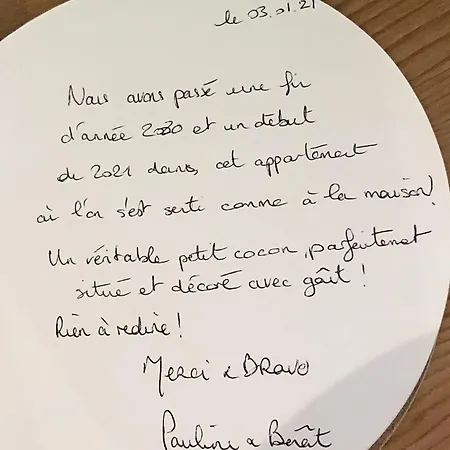 le 03.01.21
Nous avons passé une fin
d'année 2020 et un début
de 2021 dans, cet appartement
où l'on s'est senti comme à la maison!
Un véritable petit cocon, parfaitement
situé et décoré avec goût !
Rien à redire !
Merci & BRAVO
Pauline & Benoît